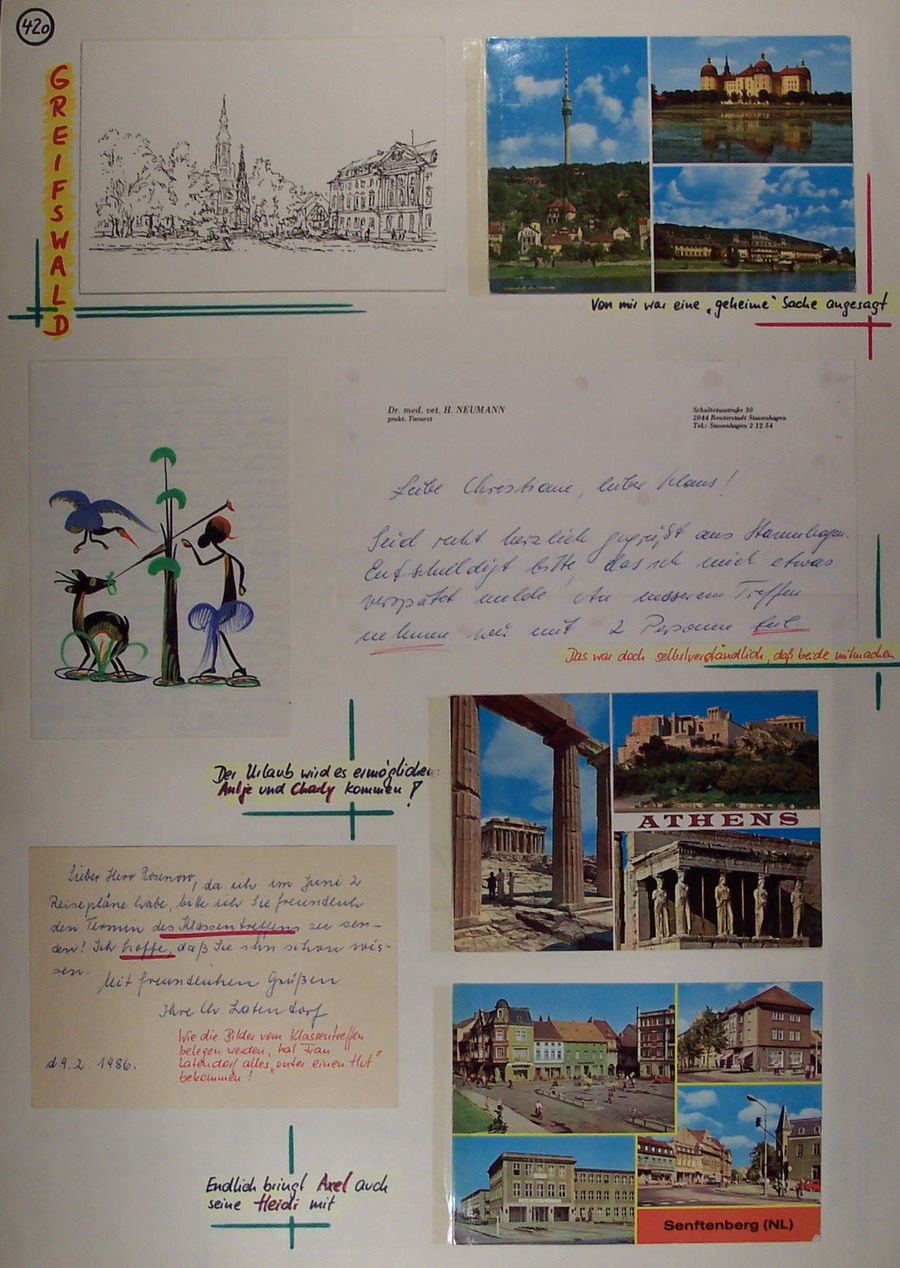 420
GREIFSWALD
Von mir war eine „geheime" Sache angesagt
Dr. med. vet. H. NEUMANN
prakt. Tierarzt
Schultetusstraße 30
2044 Reuterstadt Stavenhagen
Tel.: Stavenhagen 2 12 54
Liebe Christiane, lieber Klaus!
Seid recht herzlich gegrüßt aus Stavenhagen.
Entschuldigt bitte, das ich mich etwas
verspätet melde. An unserem Treffen
nehmen wir mit 2 Personen teil
Das war doch selbstverständlich, daß beide mitmachen
Der Urlaub wird es ermöglichen:
Antje und Chardy kommen!
ATHENS
Lieber Herr Rosenow, da ich im Juni 2
Reisepläne habe, bitte ich Sie freundlich
den Termin des Klassentreffens zu sen-
den! Ich hoffe, daß Sie ihn schon wis-
sen.
Mit freundlichen Grüßen
Ihre Chr. Latendorf
d. 9. 2. 1986.
Wie die Bilder vom Klassentreffen
belegen werden, hat Frau
Latendorf alles „unter einen Hut"
bekommen!
Endlich bringt Axel auch
seine Heidi mit
Senftenberg (NL)